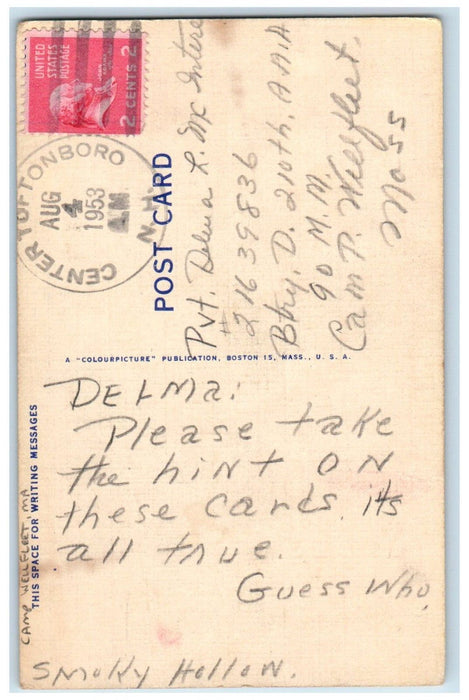 UNITED
STATES
POSTAGE
2 CENTS 2
CENTER TUFTONBORO
AUG
4
1953
AM
N.H.
POST CARD
Pvt. Delma L. Mc Intere
# 21639836
Btry. D. 210th, AAA
90 M.M.
Camp. Wellfleet.
Mass
A "COLOURPICTURE" PUBLICATION, BOSTON 15, MASS., U. S. A.
THIS SPACE FOR WRITING MESSAGES
CAMP WELLFLEET, MA
DELMA:
Please take
the hint ON
these cards. Its
all true.
Guess Who,
Smoky Hollow.